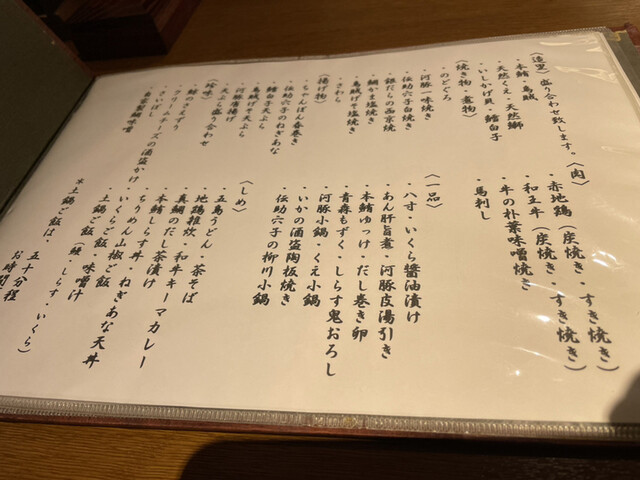 〈造里〉盛り合わせ致します。
・本鮪・烏賊
・天然くえ・天然鰤
・いしかげ貝・鱈白子
〈焼き物・煮物〉
・のどぐろ
・河豚一味焼き
・伝助穴子白焼き
・銀だらの西京焼
・鯛かま塩焼き
・烏賊げそ塩焼き
・さわら
〈揚げ物〉
・ちゃんぽん春巻き
・伝助穴子のねぎあな
・鱈白子天ぷら
・烏賊げそ天ぷら
・河豚唐揚げ
・天ぷら盛り合わせ
〈珍味〉
・鯨のさえずり
・クリームチーズの酒盗かけ
・さいぼし
・自家製鯛味噌
〈肉〉
・赤地鶏（炭焼き・すき焼き）
・和王牛（炭焼き・すき焼き）
・牛の朴葉味噌焼き
・馬刺し
〈一品〉
・八寸・いくら醤油漬け
・あん肝旨煮・河豚皮湯引き
・本鮪ゆっけ・だし巻き卵
・青森もずく・しらす鬼おろし
・河豚小鍋・くえ小鍋
・いかの酒盗陶板焼き
・伝助穴子の柳川小鍋
〈しめ〉
・五島うどん・茶そば
・地鶏雑炊・和牛キーマカレー
・真鯛のだし茶漬け
・本鮪しらす丼・ねぎあな天丼
・ちりめん山椒ご飯
・いくらご飯・味噌汁
・土鍋ご飯（鰻、しらす、いくら）
※土鍋ご飯は、五十分程
お時間